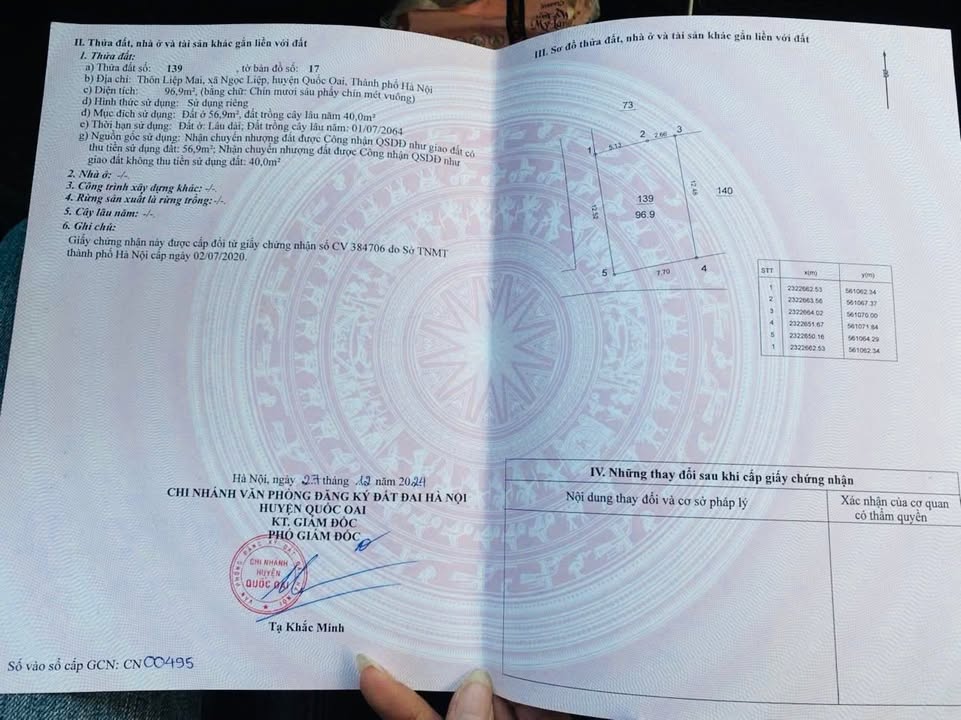 II. Thửa đất, nhà ở và tài sản khác gắn liền với đất
1. Thửa đất:
a) Thửa đất số: 139 , tờ bản đồ số: 17
b) Địa chỉ: Thôn Liệp Mai, xã Ngọc Liệp, huyện Quốc Oai, Thành phố Hà Nội
c) Diện tích: 96,9m², (bằng chữ: Chín mươi sáu phẩy chín mét vuông)
d) Hình thức sử dụng: Sử dụng riêng
đ) Mục đích sử dụng: Đất ở 56,9m², đất trồng cây lâu năm 40,0m²
e) Thời hạn sử dụng: Đất ở: Lâu dài; Đất trồng cây lâu năm: 01/07/2064
g) Nguồn gốc sử dụng: Nhận chuyển nhượng đất được Công nhận QSDĐ như giao đất có
thu tiền sử dụng đất: 56,9m²; Nhận chuyển nhượng đất được Công nhận QSDĐ như
giao đất không thu tiền sử dụng đất: 40,0m²
2. Nhà ở: -/-.
3. Công trình xây dựng khác: -/-.
4. Rừng sản xuất là rừng trồng:-/-.
5. Cây lâu năm: -/-.
6. Ghi chú:
Giấy chứng nhận này được cấp đổi từ giấy chứng nhận số CV 384706 do Sở TNMT
thành phố Hà Nội cấp ngày 02/07/2020.
Hà Nội, ngày 27 tháng 12 năm 2024
CHI NHÁNH VĂN PHÒNG ĐĂNG KÝ ĐẤT ĐAI HÀ NỘI
HUYỆN QUỐC OAI
KT. GIÁM ĐỐC
PHÓ GIÁM ĐỐC
CHI NHÁNH
HUYỆN
QUỐC OAI
Tạ Khắc Minh
Số vào sổ cấp GCN: CN 00495
III. Sơ đồ thửa đất, nhà ở và tài sản khác gắn liền với đất
B
73
1 5.13 2 2.66 3
12.52
12.48
140
139
96.9
5 7.70 4
STT x(m) y(m)
1 2322662.53 561062.34
2 2322663.56 561067.37
3 2322664.02 561070.00
4 2322651.67 561071.84
5 2322650.16 561064.29
1 2322662.53 561062.34
IV. Những thay đổi sau khi cấp giấy chứng nhận
Nội dung thay đổi và cơ sở pháp lý
Xác nhận của cơ quan
có thẩm quyền